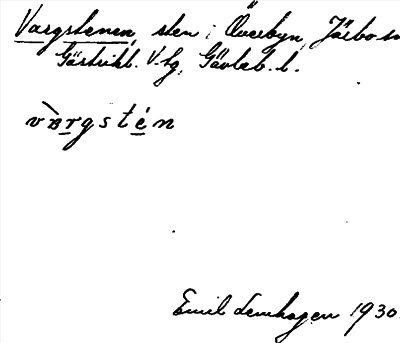 Vargstenen, sten i Överbyn, Järbo sn
Gästrikl. V. tg, Gävleb. l.
vàrgstén
Emil Lenhagen 1930.